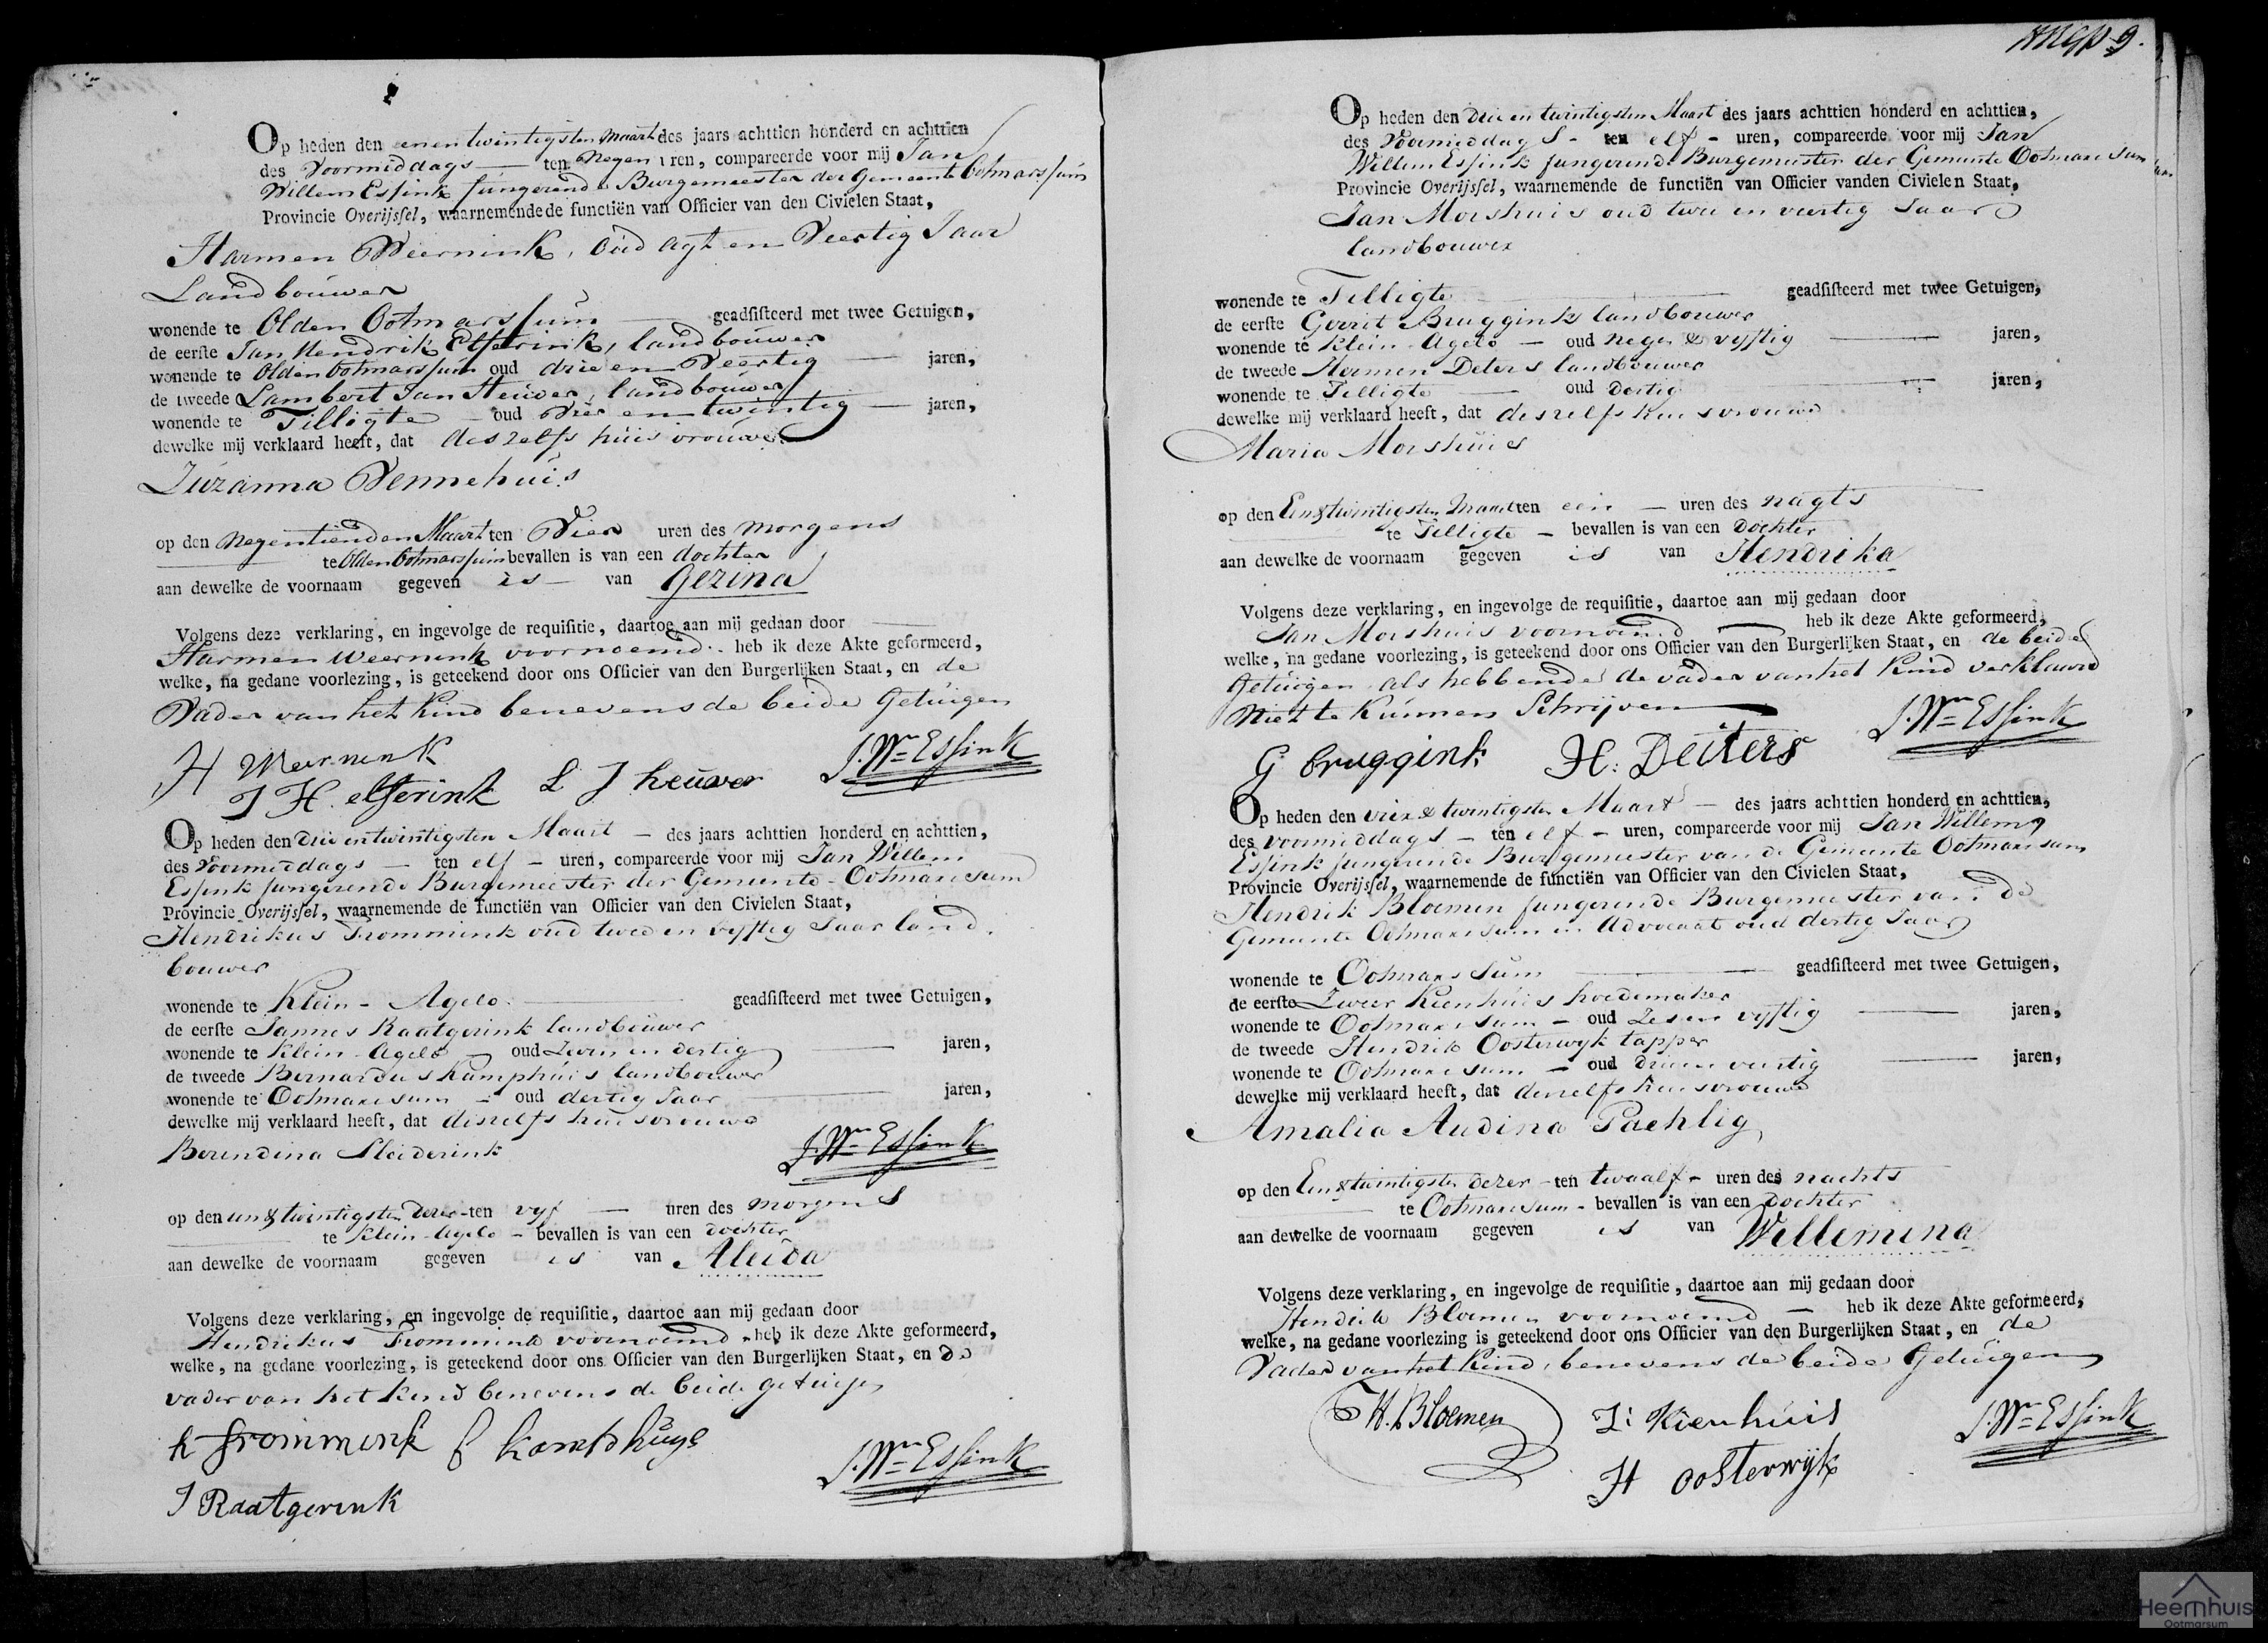 Op heden den eenentwintigsten Maart des jaars achttien honderd en achttien
des Voormiddags ten Negen uren, compareerde voor mij Jan
Willem Essink fungerende Burgemeester der Gemeente Ootmarssum
Provincie Overijssel, waarnemendede functiën van Officier van den Civielen Staat,
Harmen Weernink, Oud agt en Veertig Jaar
Landbouwer
wonende te Olden Ootmarssum geadsisteerd met twee Getuigen,
de eerste Jan Hendrik Elferink, landbouwer
wonende te Olden Ootmarssum oud drie en Veertig jaren,
de tweede Lambert Jan Heuver, landbouwer
wonende te Tilligte oud Vier en twintig jaren,
dewelke mij verklaard heeft, dat deszelfs huisvrouwe
Zuzanna Vennehuis
op den Negentienden Maart ten Vier uren des morgens
te Olden Ootmarssum bevallen is van een dochter
aan dewelke de voornaam gegeven is van Gezina
Volgens deze verklaring, en ingevolge de requisitie, daartoe aan mij gedaan door
Harmen Weernink voornoemd heb ik deze Akte geformeerd,
welke, na gedane voorlezing, is geteekend door ons Officier van den Burgerlijken Staat, en de
Vader van het Kind benevens de beide Getuigen
H Weernink
J H elferink L J heuver J. Wm Essink
Op heden den Drie en twintigsten Maart des jaars achttien honderd en achttien,
des Voormiddags ten elf uren, compareerde voor mij Jan Willem
Essink fungerende Burgemeester der Gemeente Ootmarssum
Provincie Overijssel, waarnemende de functiën van Officier van den Civielen Staat,
Hendrikus Frommink oud twee en vyftig Jaar land
bouwer
wonende te Klein-Agelo geadsisteerd met twee Getuigen,
de eerste Jannes Raatgerink landbouwer
wonende te Klein-Agelo oud Zeven en dertig jaren,
de tweede Bernardus Kamphuis landbouwer
wonende te Ootmarssum oud dertig Jaar jaren,
dewelke mij verklaard heeft, dat deszelfs huisvrouwe
Berendina Sleiderink J. Wm Essink
op den een & twintigsten dezer ten vyf uren des morgens
te Klein-Agelo bevallen is van een dochter
aan dewelke de voornaam gegeven is van Aleida
Volgens deze verklaring, en ingevolge de requisitie, daartoe aan mij gedaan door
Hendrikus Frommink voornoemd heb ik deze Akte geformeerd,
welke, na gedane voorlezing, is geteekend door ons Officier van den Burgerlijken Staat, en de
vader van het kind benevens de beide getuigen
h frommink B kamphuys
J. Wm Essink
J Raatgerink
9.
Op heden den Drie en twintigsten Maart des jaars achttien honderd en achttien,
des Voormiddags ten elf uren, compareerde voor mij Jan
Willem Essink fungerende Burgemeester der Gemeente Ootmarssum
Provincie Overijssel, waarnemende de functiën van Officier vanden Civielen Staat,
Jan Morshuis oud twee en veertig Jaar
landbouwer
wonende te Tilligte geadsisteerd met twee Getuigen,
de eerste Gerrit Bruggink landbouwer
wonende te Klein-Agelo oud negen & vyftig jaren,
de tweede Hermen Deters landbouwer
wonende te Tilligte oud Dertig jaren,
dewelke mij verklaard heeft, dat deszelfs huisvrouwe
Maria Morshuis
op den Een & twintigsten Maart ten een uren des nagts
te Tilligte bevallen is van een Dochter
aan dewelke de voornaam gegeven is van Hendrika
Volgens deze verklaring, en ingevolge de requisitie, daartoe aan mij gedaan door
Jan Morshuis voornoemd heb ik deze Akte geformeerd,
welke, na gedane voorlezing, is geteekend door ons Officier van den Burgerlijken Staat, en de beide
Getuigen als hebbende de vader van het Kind verklaard
Niet te Kunnen Schrijven J. Wm Essink
G bruggink H. Deiters
Op heden den vier & twintigsten Maart des jaars achttien honderd en achttien,
des voormiddags ten elf uren, compareerde voor mij Jan Willem
Essink fungerende Burgemeester van de Gemeente Ootmarssum
Provincie Overijssel, waarnemende de functiën van Officier van den Civielen Staat,
Hendrik Bloemen fungerende Burgemeester van de
Gemeente Ootmarssum en Advocaat oud dertig Jaar
wonende te Ootmarssum geadsisteerd met twee Getuigen,
de eerste Zweer Kienhuis hoedemaker
wonende te Ootmarssum oud Zes en vyftig jaren,
de tweede Hendrik Oosterwyk tapper
wonende te Ootmarssum oud drie en veertig jaren,
dewelke mij verklaard heeft, dat deszelfs huisvrouwe
Amalia Audina Paehlig
op den Een & twintigsten dezer ten twaalf uren des nachts
te Ootmarssum bevallen is van een Dochter
aan dewelke de voornaam gegeven is van Willemina
Volgens deze verklaring, en ingevolge de requisitie, daartoe aan mij gedaan door
Hendrik Bloemen voornoemd heb ik deze Akte geformeerd,
welke, na gedane voorlezing is geteekend door ons Officier van den Burgerlijken Staat, en de
Vader van het Kind, benevens de beide Getuigen
H. Bloemen Z: Kienhuis J. Wm Essink
H oosterwijk
Heemhuis
Ootmarsum